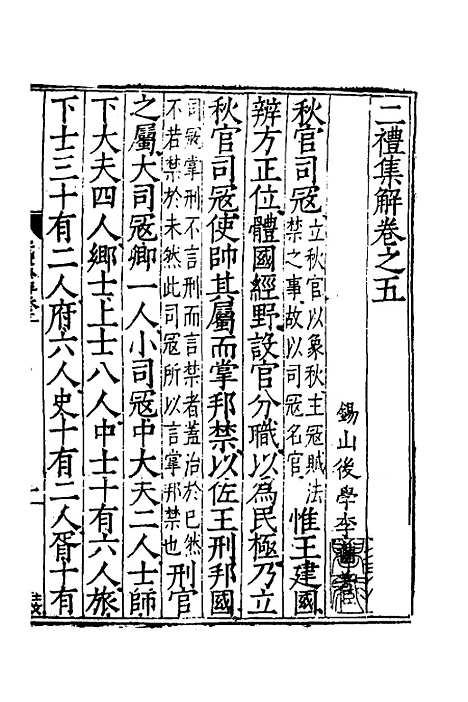 二禮集解卷之五
錫山後學李
秋官司寇立秋官以象秋主寇賊法禁之事故以司寇名官惟王建國
辨方正位體國經野設官分職以為民極乃立
秋官司寇使帥其屬而掌邦禁以佐王刑邦國
司寇掌刑不言刑而言禁者蓋治於已然不若禁於未然此司寇所以言掌邦禁也刑官
之屬大司寇卿一人小司寇中大夫二人士師
下大夫四人鄉士上士八人中士十有六人旅
下士三十有二人府六人史十有二人胥十有